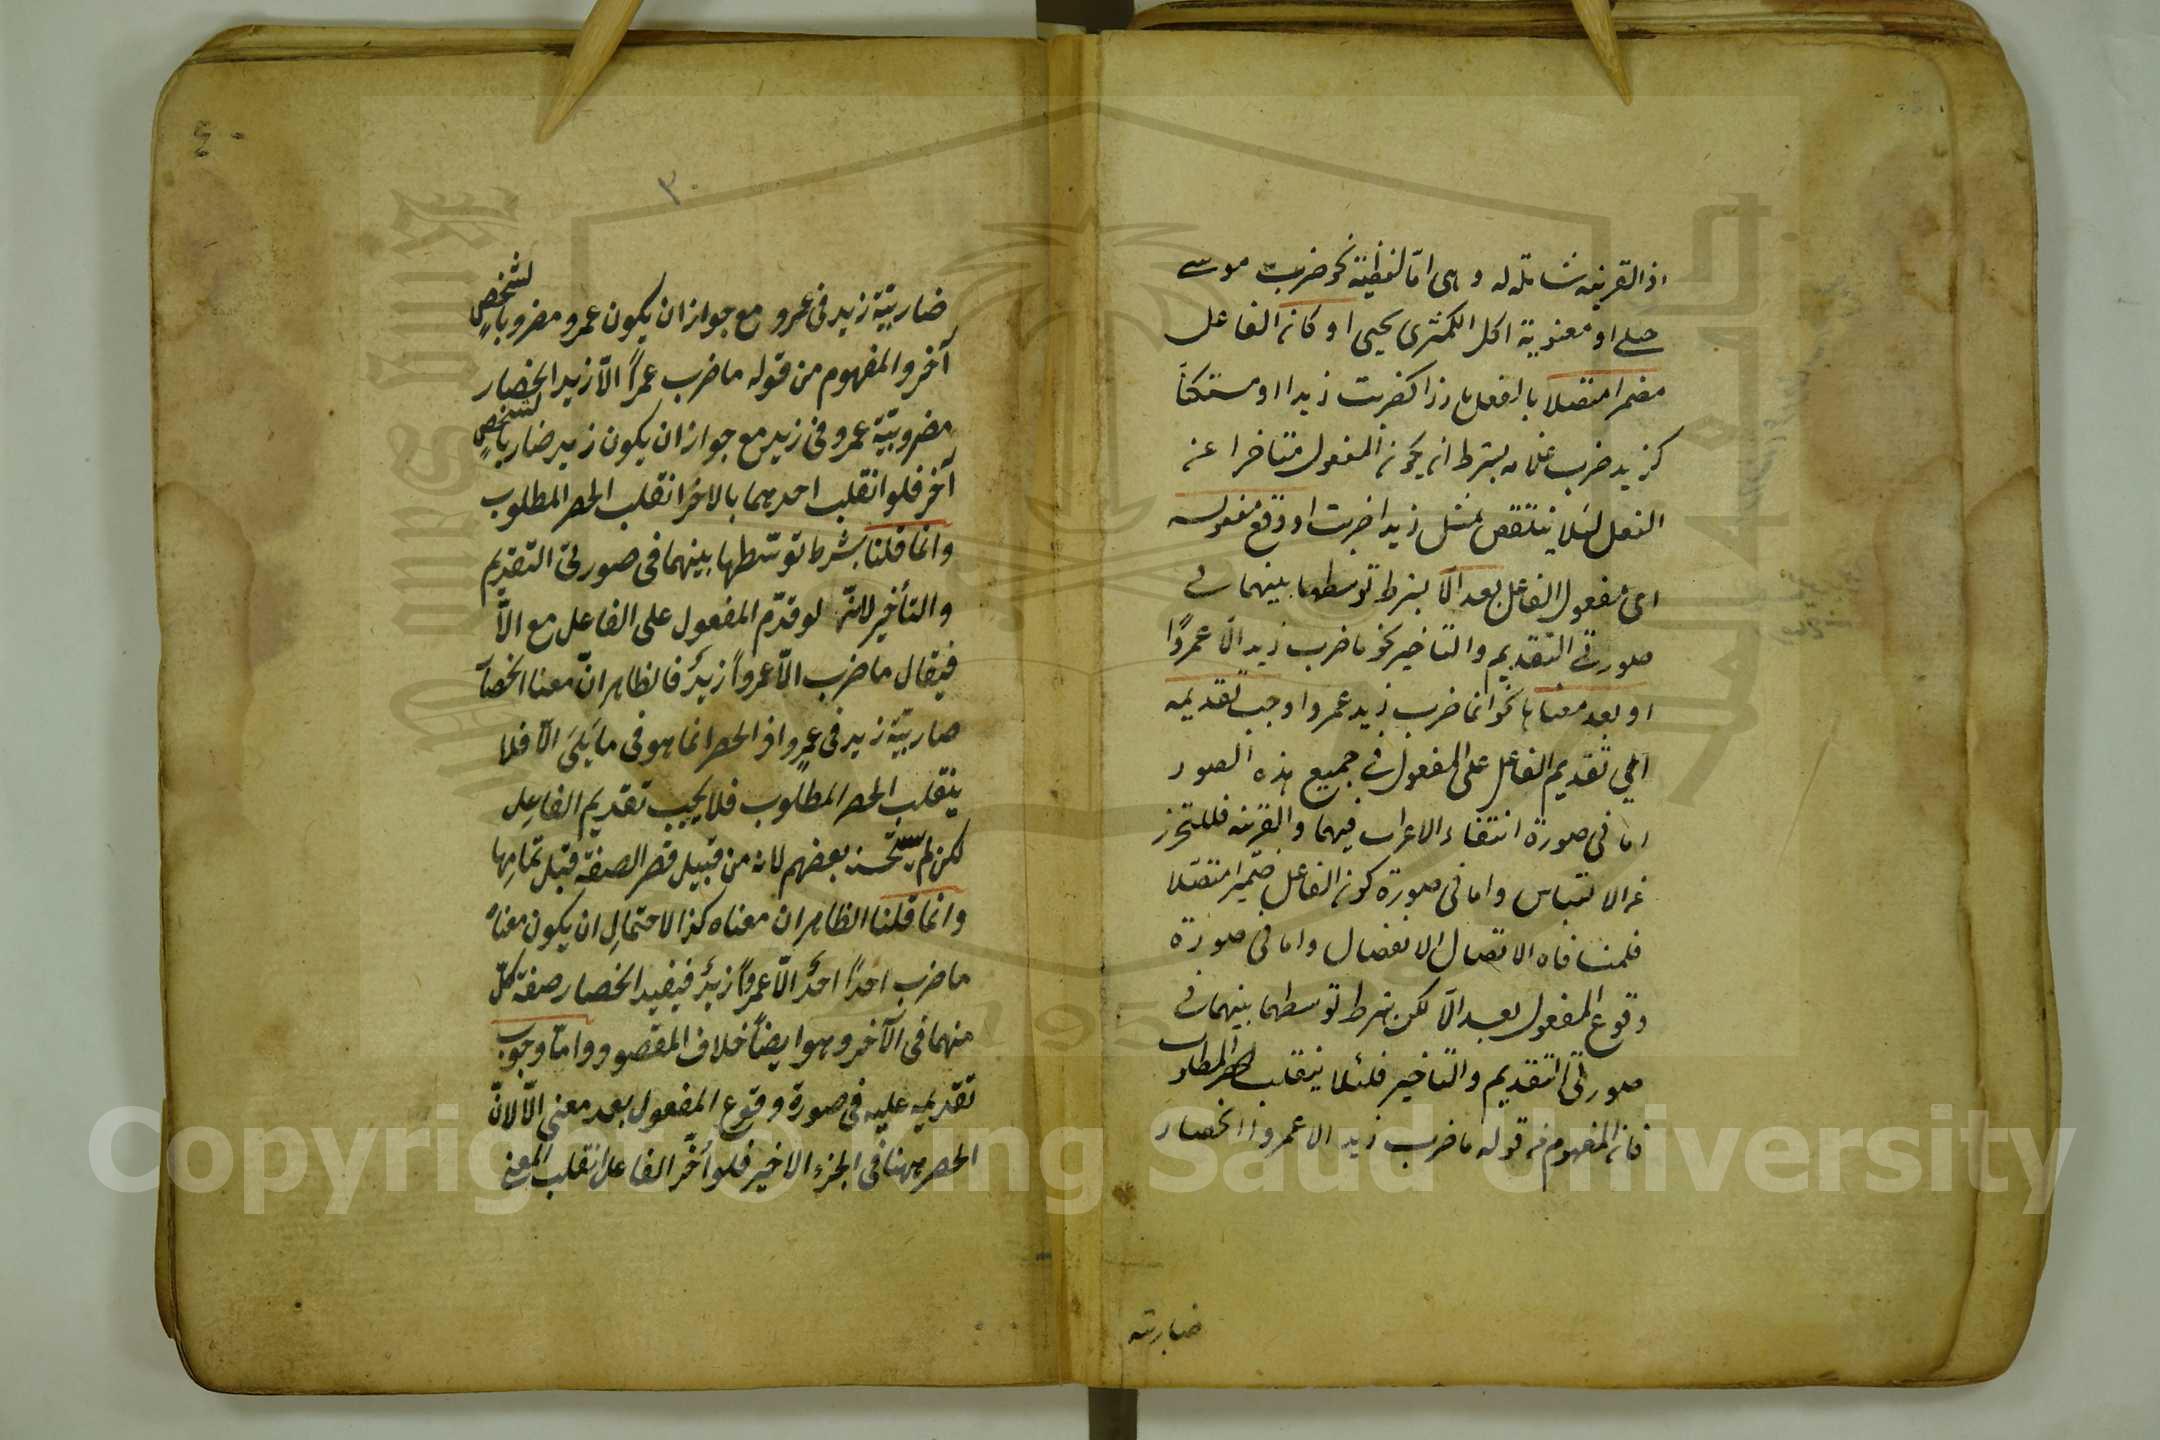 اذ القرينة شاملة له وهى امّا لفظية نحو ضربت موسى
حبلى او معنوية اكل الكمثرى يحيى او كان الفاعل
مضمرا متصلا بالفعل بارزا كضربت زيدا او مستكنا
كزيد ضرب غلامه بشرط ان يكون المفعول متاخرا عن
الفعل لئلا ينتقض بمثل زيدا ضربت او وقع مفعوله
اى مفعول الفاعل بعد الّا بشرط توسطها بينهما فى
صورتى التقديم والتاخير نحو ما ضرب زيد الّا عمروًا
او بعد معناها نحو انما ضرب زيد عمروا وجب تقديمه
اى تقديم الفاعل على المفعول فى جميع هذه الصور
اما فى صورة انتفاء الاعراب فيهما والقرينة فللتحرز
عن الالتباس واما فى صورة كون الفاعل ضميرا متصلا
فلمنافاة الاتصال الانفصال واما فى صورة
وقوع المفعول بعد الّا لكن بشرط توسطها بينهما فى
صورتى التقديم والتاخير فلئلا ينقلب الحصر المطلوب
فان المفهوم من قوله ما ضرب زيد الا عمروا انحصار
ضاربية
٤٠
٣٠
ضاربيّة زيد فى عمرو مع جواز ان يكون عمرو مضروبا لشخصٍ
آخر والمفهوم من قوله ما ضرب عمراً الّا زيد انحصار
مضروبيّة عمرو فى زيد مع جواز ان يكون زيد ضاربا لشخصٍ
آخر فلو انقلب احدهما بالاخر انقلب الحصر المطلوب
وانما قلنا بشرط توسّطها بينهما فى صورتى التقديم
والتأخير لانّه لو قدّم المفعول على الفاعل مع الّا
فيقال ما ضرب الّا عمرواً زيدٌ فالظاهر انّ معنا انحصار
ضاربيّة زيد فى عمرو اذ الحصر انما هو فى ما يَلىَ الّا فلا
ينقلب الحصر المطلوب فلا يجب تقديم الفاعل
لكن لم يستحسنه بعضهم لانه من قبيل قصر الصفة قبل تمامها
وانما قلنا الظاهر ان معناه كذا لاحتمال ان يكون معناه
ما ضرب احداً احدٌ الّا عمرواً زيدٌ فيفيد انحصار صفة كلّ
منهما فى الآخر وهو ايضاً خلاف المقصود وامّا وجوب
تقديمه عليه فى صورة وقوع المفعول بعد معنى الّا لانّ
الحصر ههنا فى الجزء الاخير فلو أخّر الفاعل انقلب المعنى
Copyright © King Saud University